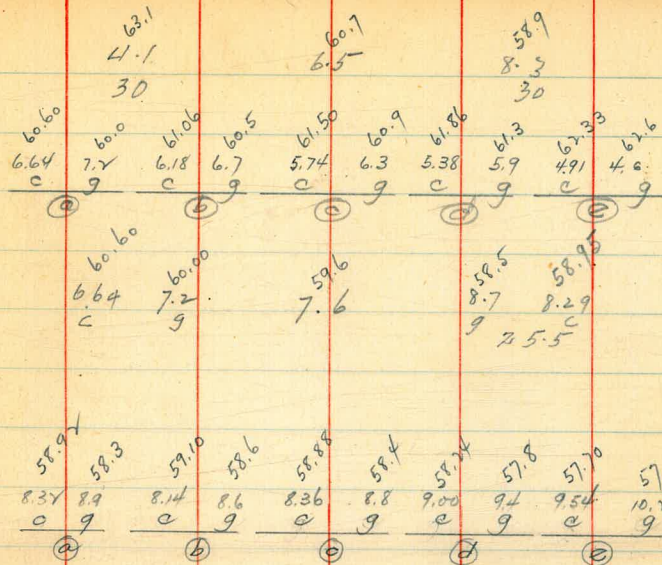 63.1 60.7 58.9
4.1 6.5 8.3
30 30
60.60 60.0 61.06 60.5 61.50 60.9 61.86 61.3 62.33 62.6
6.64 7.2 6.18 6.7 5.74 6.3 5.38 5.9 4.91 4.6
c g c g c g c g c g
a b c d e
60.60 60.00 59.6 58.5 58.95
6.64 7.2 7.6 8.7 8.29
c g g c
25.5
58.92 58.3 59.10 58.6 58.88 58.4 58.24 57.8 57.70 57
8.32 8.9 8.14 8.6 8.36 8.8 9.00 9.4 9.54 10.2
c g c g c g c g c g
a b c d e